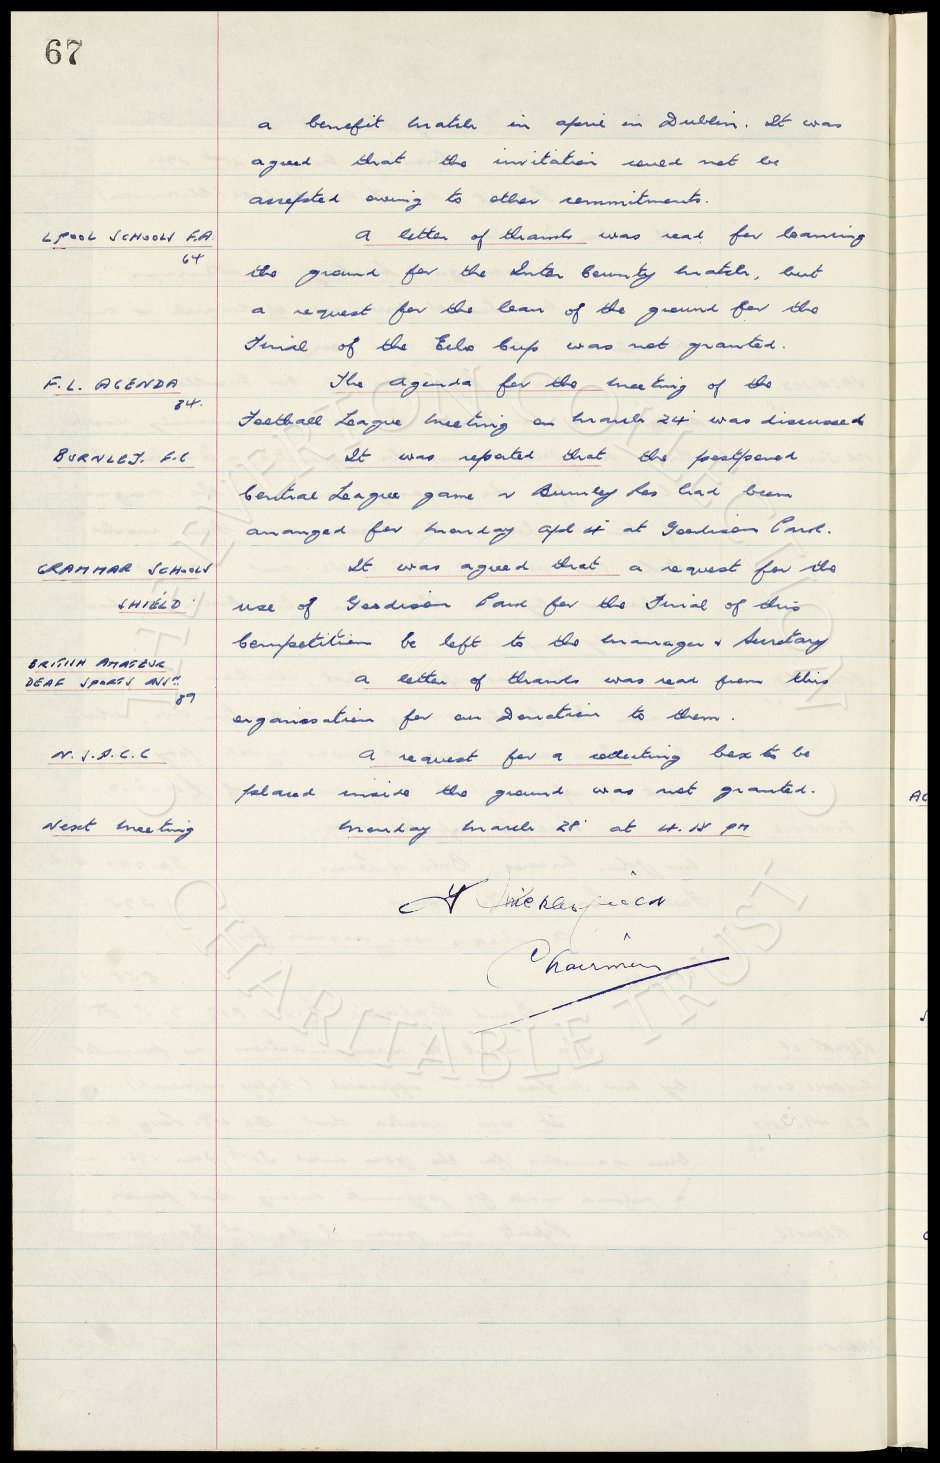 67
a benefit match in april in Dublin. It was
agreed that the invitation could not be
accepted owing to other commitments.
LPOOL SCHOOLS F.A.
64
A letter of thanks was read for loaning
the ground for the Inter County match, but
a request for the loan of the ground for the
Final of the Echo Cup was not granted.
F.L. AGENDA
84.
The Agenda for the meeting of the
Football League meeting on March 24 was discussed
BURNLEY. F.C
It was reported that the postponed
Central League game v Burnley Res had been
arranged for Monday Apl 4 at Goodison Park.
GRAMMAR SCHOOLS
SHIELD
It was agreed that a request for the
use of Goodison Park for the Final of this
Competition be left to the manager & Secretary
BRITISH AMATEUR
DEAF SPORTS ASSN
89
A letter of thanks was read from this
organisation for our Donation to them.
N.S.P.C.C
A request for a collecting box to be
placed inside the ground was not granted.
Next Meeting
Monday March 28 at 4.15 PM
Chairman
EVERTON COLLECTION
CHARITABLE TRUST